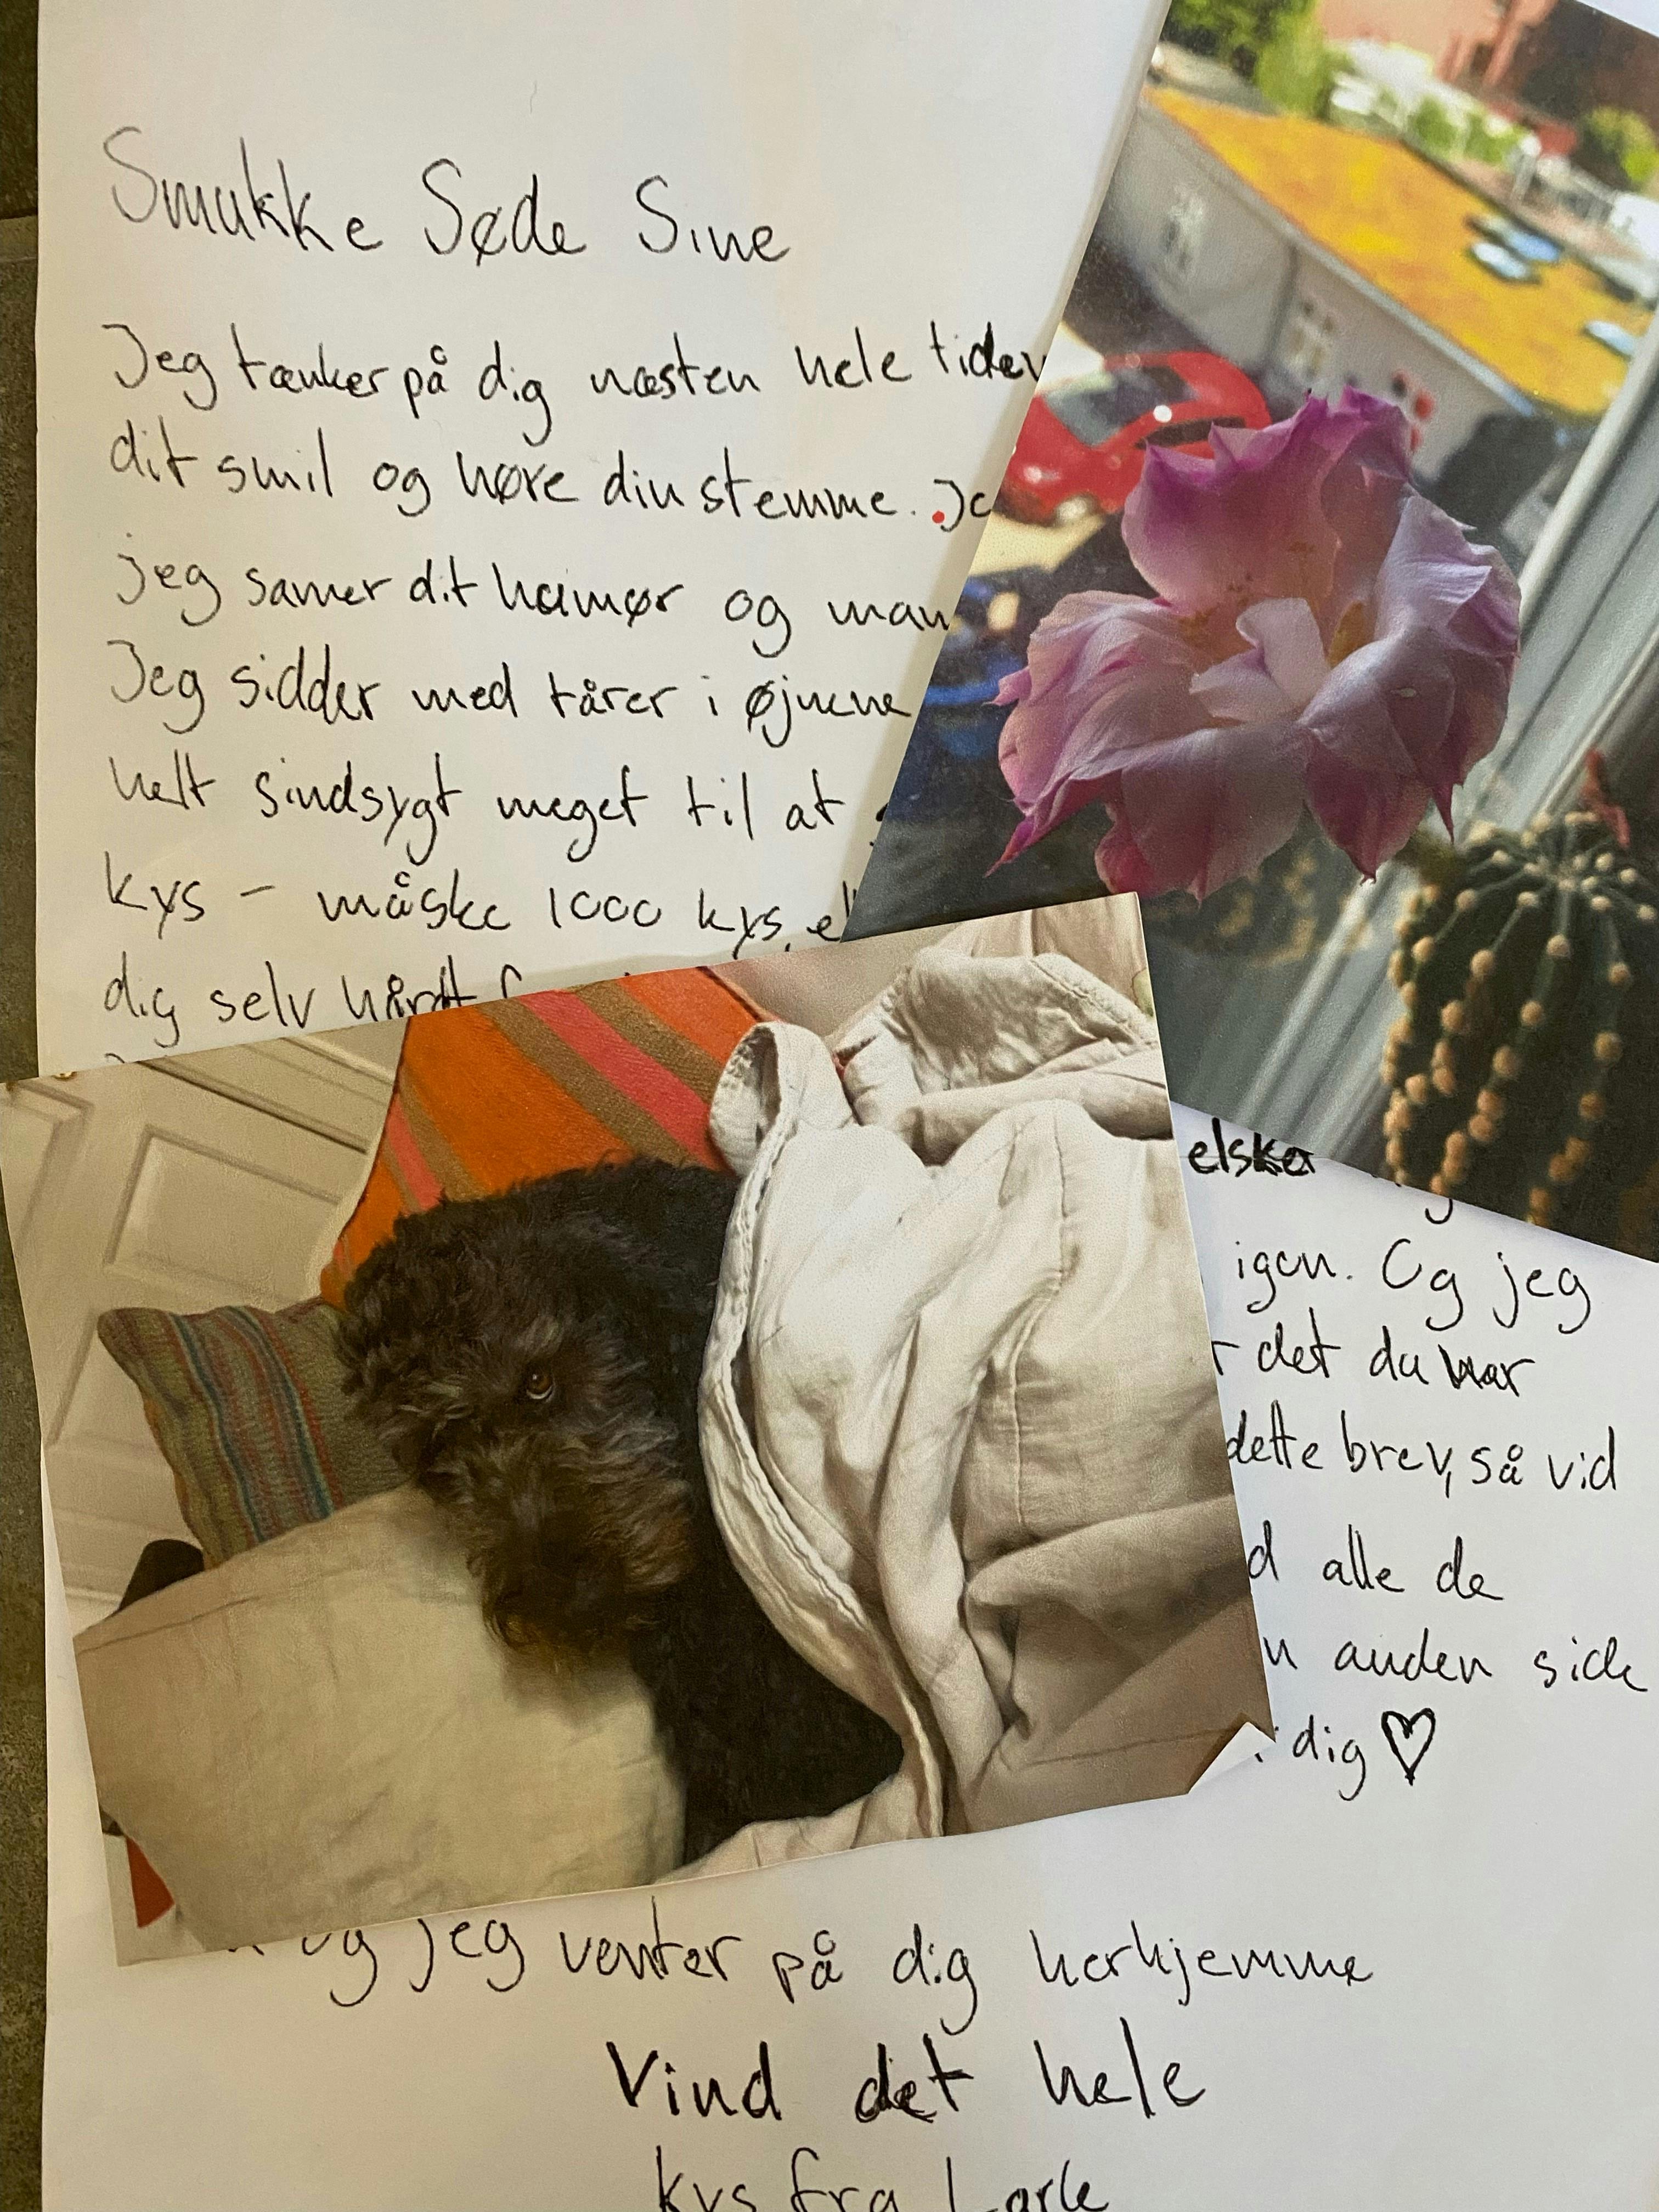 Smukke Søde Sine
Jeg tænker på dig næsten hele tiden
dit smil og høre din stemme. Je
jeg savner dit humør og man
Jeg sidder med tårer i øjnene
helt sindsygt meget til at
kys – måske 1000 kys, el
dig selv hårdt f
elsker
igen. Og jeg
r det du har
dette brev, så vid
d alle de
n anden side
i dig ♡
og jeg venter på dig herhjemme
Vind det hele
kys fra